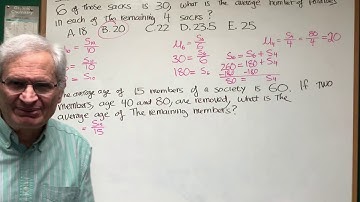 6 of those socks is 30, what is the average number of
in each of the remaining 4 socks?
A. 18 B. 20 C. 22 D. 23.5 E. 25
= S₁₀/10
μ₆ = S₆/6
μ₄ = S₄/4 = 80/4 = 20
30 = S₆/6
S₁₀ = S₆ + S₄
260 = 180 + S₄
180 = S₆
-180 -180
80 = S₄
average age of 15 members of a society is 60. If two
members, age 40 and 80, are removed, what is the
average age of the remaining members?
= S₁₅/15